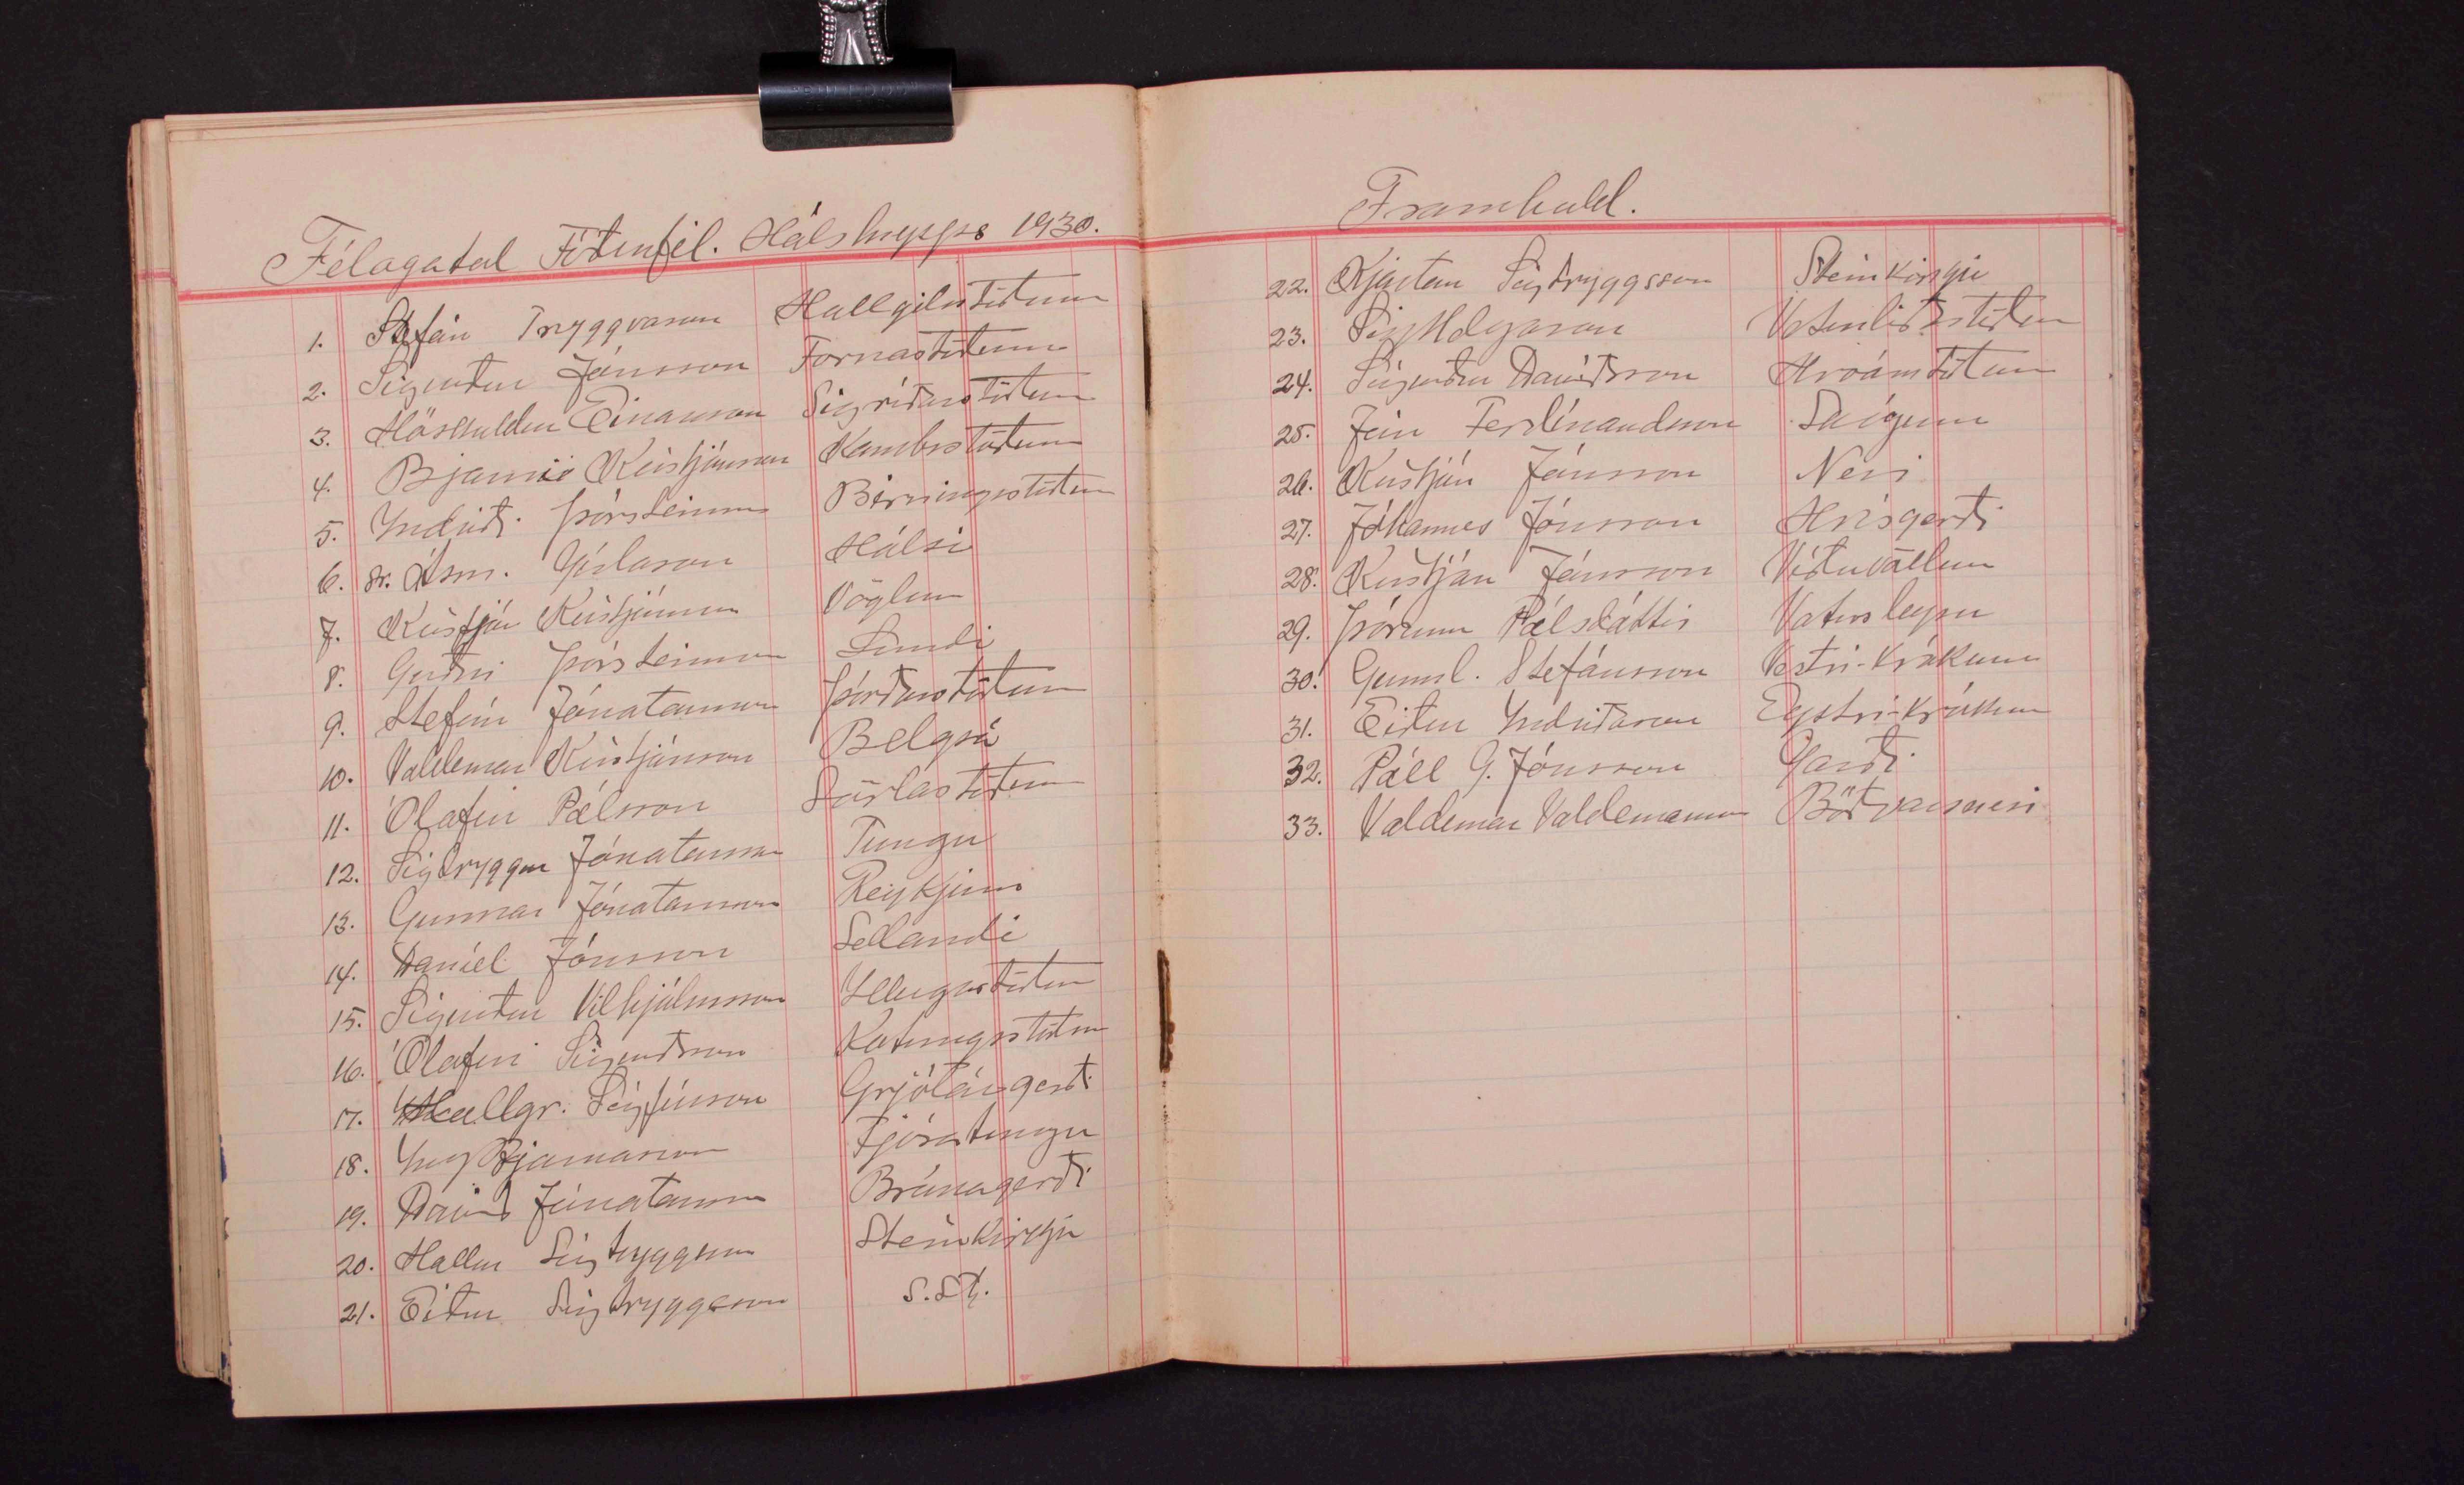 Félagatal Fóðurfél. Hálshrepps 1930.
1. Stefán Tryggvason Hallgilsstöðum
2. Sigurður Jónsson Fornastöðum
3. Höskuldur Einarsson Sigríðarstöðum
4. Bjarni Kristjánsson Kambsstöðum
5. Indriði Þórsteinsson Birningsstöðum
6. sr. Ásm. Gíslason Hálsi
7. Kristján Kristjánsson Vöglum
8. Guðni Þórsteinsson Lundi
9. Stefán Jónatansson Þórðarstöðum
10. Valdemar Kristjánsson Belgsá
11. Ólafur Pálsson Sörlastöðum
12. Sigtryggur Jónatansson Tungu
13. Gunnar Jónatansson Reykjum
14. Daníel Jónsson Sellandi
15. Sigurður Vilhjálmsson Illugastöðum
16. Ólafur Sigurðsson Kotungsstöðum
17. Hallgr. Sigfússon Grjótárgerði
18. Ing. Bjarnason Fjósatungu
19. Davíð Jónatansson Brúnagerði
20. Hallur Sigtryggsson Steinkirkju
21. Eiður Sigtryggsson S.St.
Framhald.
22. Kjartan Sigtryggsson Steinkirkju
23. Sig Helgason Veturliðastöðum
24. Sigurður Davíðsson Hróarsstöðum
25. Jón Ferdínandsson Skógum
26. Kristján Jónsson Nesi
27. Jóhannes Jónsson Hrísgerði
28. Kristján Jónsson Víðivöllum
29. Þórunn Pálsdóttir Vatnsleysu
30. Gunnl. Stefánsson Vestri-Krókum
31. Eiður Indriðason Eystri-Krókum
32. Páll G. Jónsson Garði
33. Valdemar Valdemarsson Böðvarsnesi